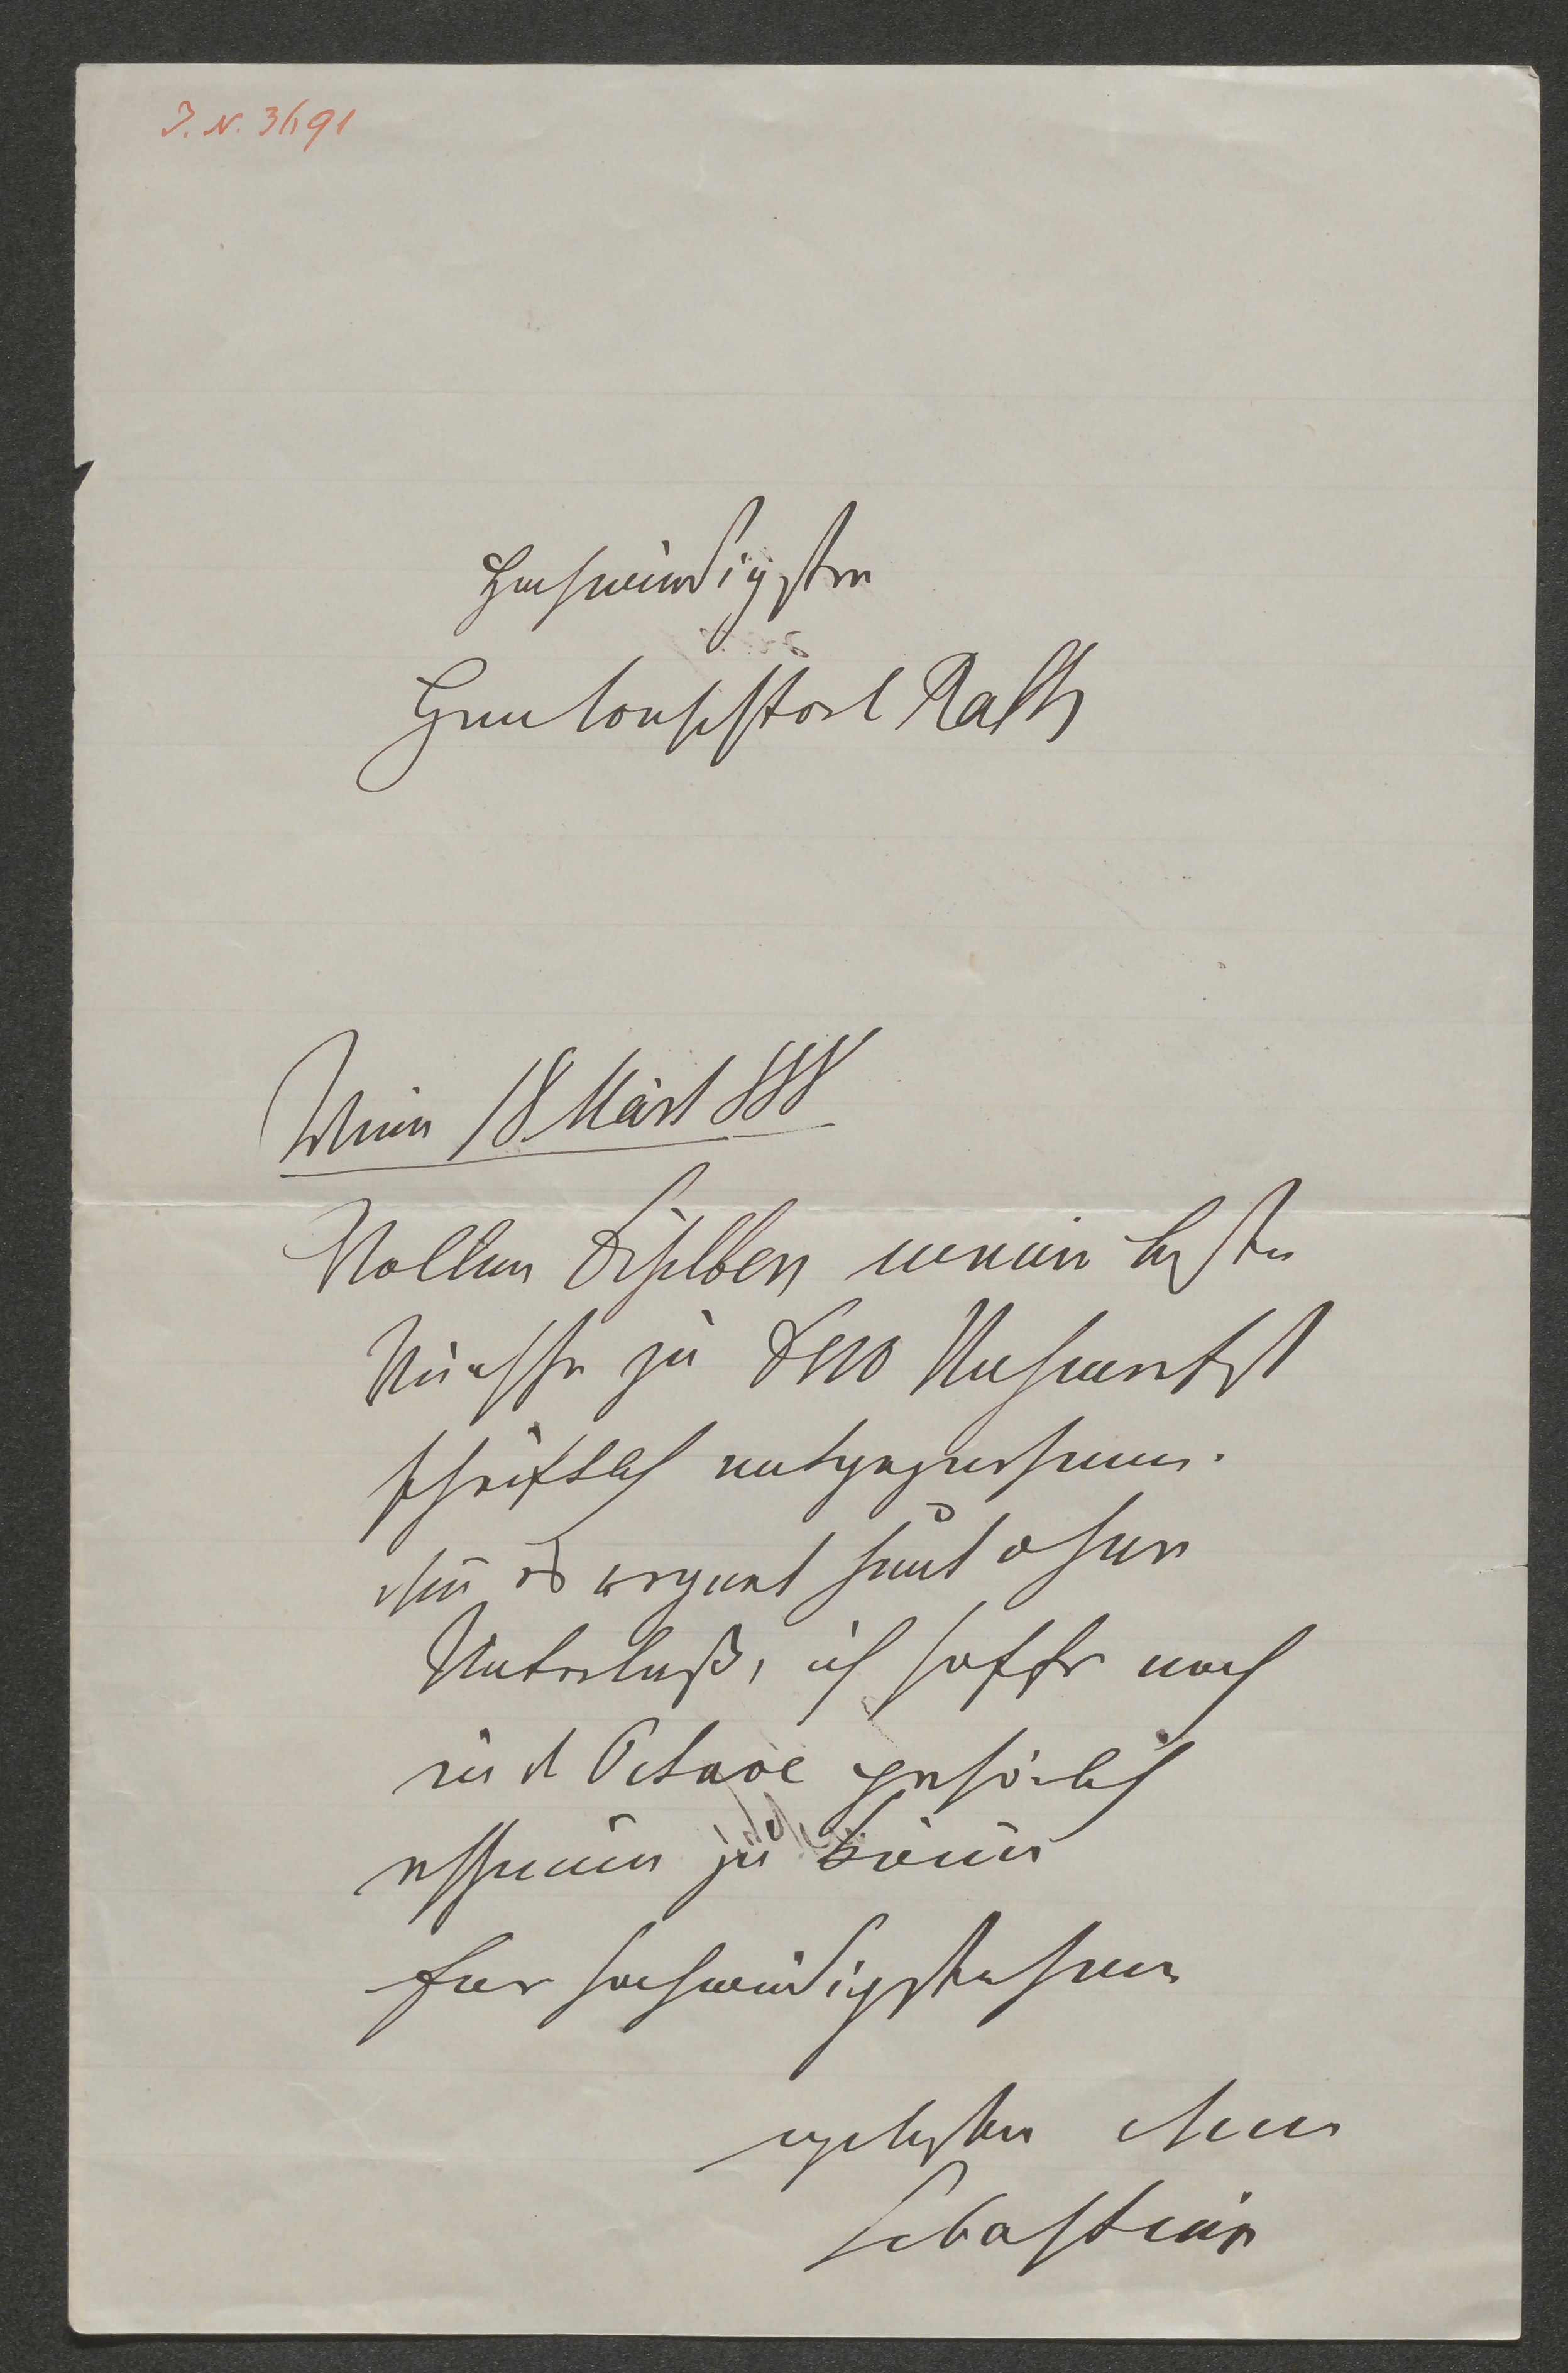 J. N. 31191
Hochwürdigster
Herr Consistorl Rath
Wien 18 März 888
Wollen dieselben meine besten
Wünsche zu Dero Namensfest
schriftlich entgegennehmen.
es regnet heut ohne
Unterlaß, ich hoffe noch
in d Octave persönlich
erscheinen zu können
Euer Hochwürdigsten Herrn
ergebenster
Sebastian